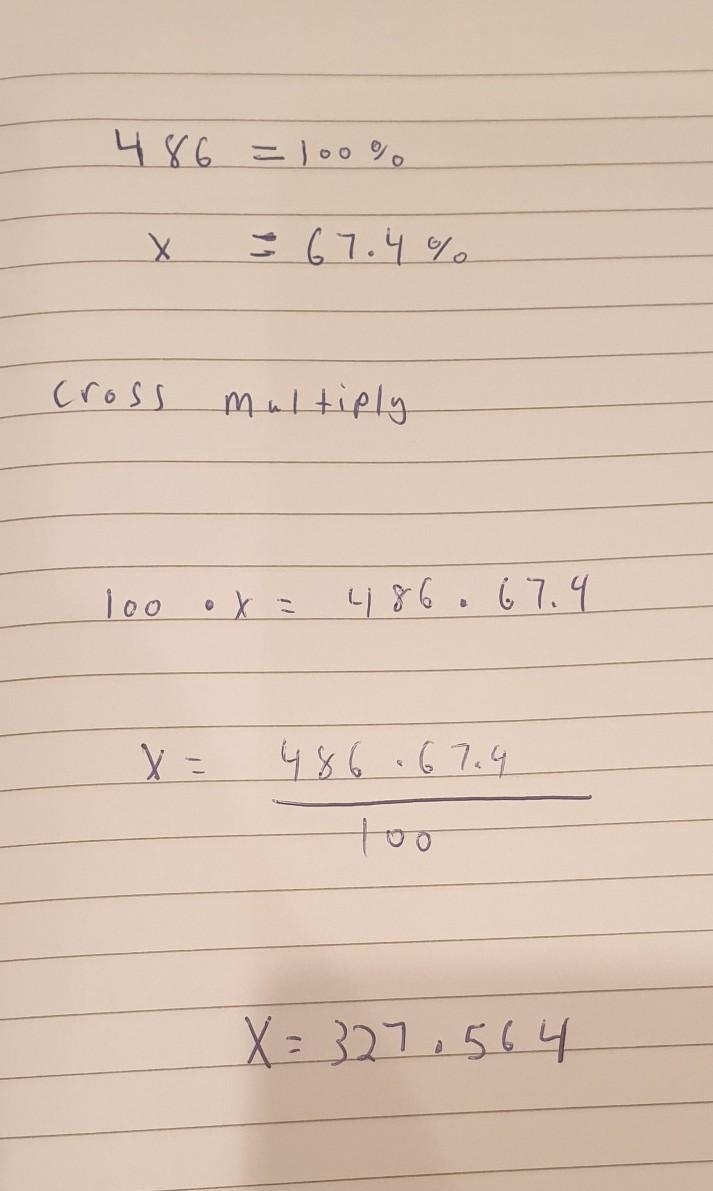 486 = 100%
x = 67.4%
cross multiply
100 • x = 486 . 67.4
x = 486 . 67.4
100
X = 327.564